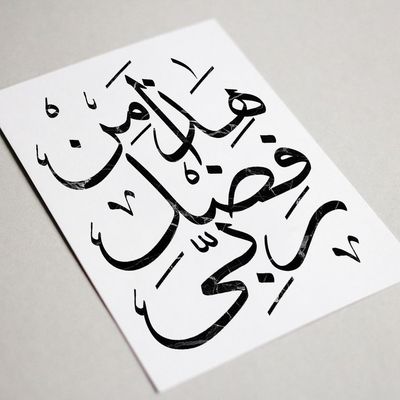 هَٰذَا مِنْ
فَضْلِ
رَبِّي